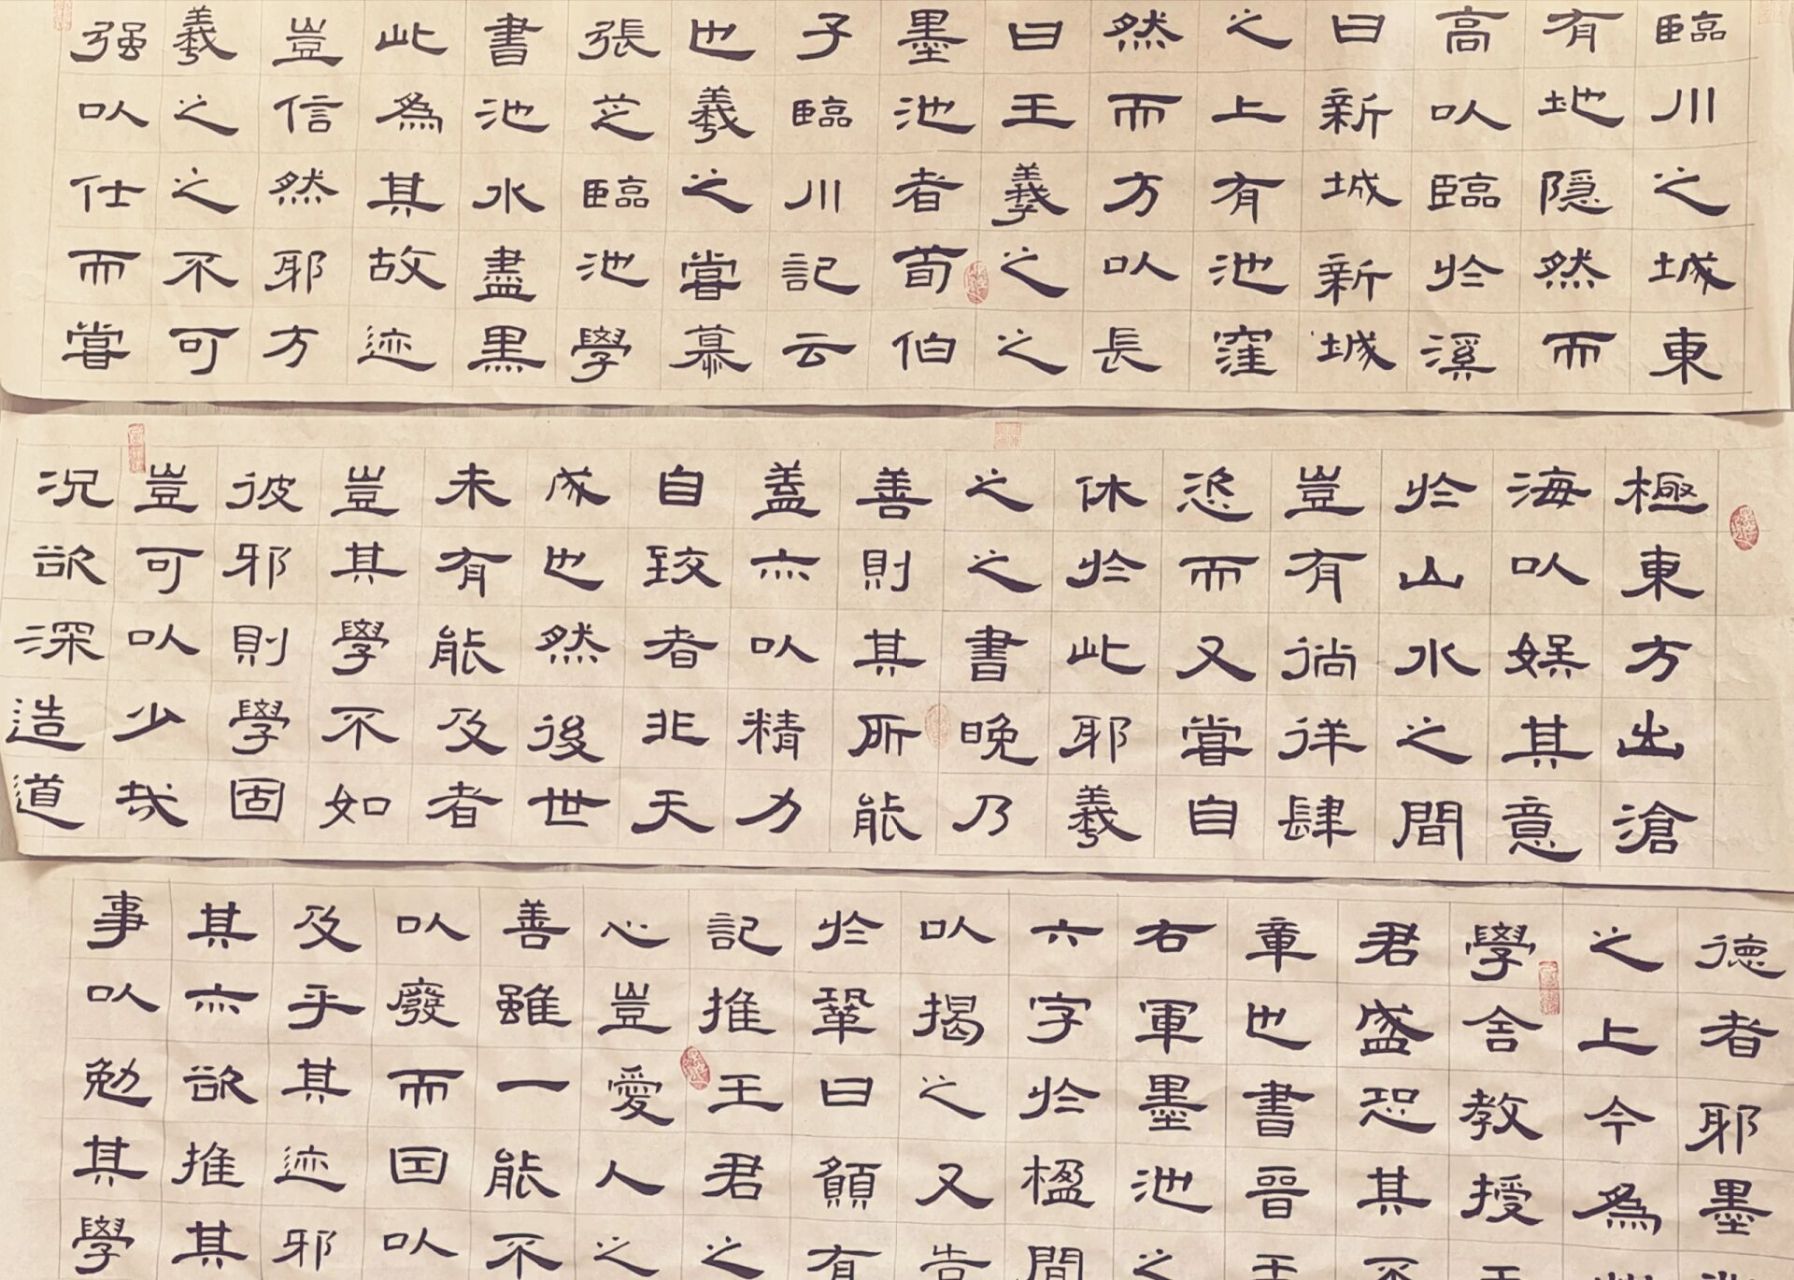 臨川之城東
有地隐然而
高以臨於溪
曰新城新城
之上有池窪
然而方以長
曰王羲之之
墨池者荀伯
子臨川記云
也羲之嘗慕
張芝臨池學
書池水盡黑
此為其故迹
豈信然耶方
羲之之不可
强以仕而嘗
極東方出滄
海以娱其意
於山水之間
豈有徜徉肆
恣而又嘗自
休於此耶羲
之之書晚乃
善則其所能
蓋亦以精力
自致者非天
成也然後世
未有能及者
豈其學不如
彼邪則學固
豈可以少哉
况欲深造道
德者耶墨
之上今為
學舍教授王
君盛恐其不
章也書晉王
右軍墨池之
六字於楹間
以揭之又告
於鞏曰願有
記推王君之
心豈愛人之
善雖一能不
以廢而因以
及乎其迹邪
其亦欲推其
事以勉其學